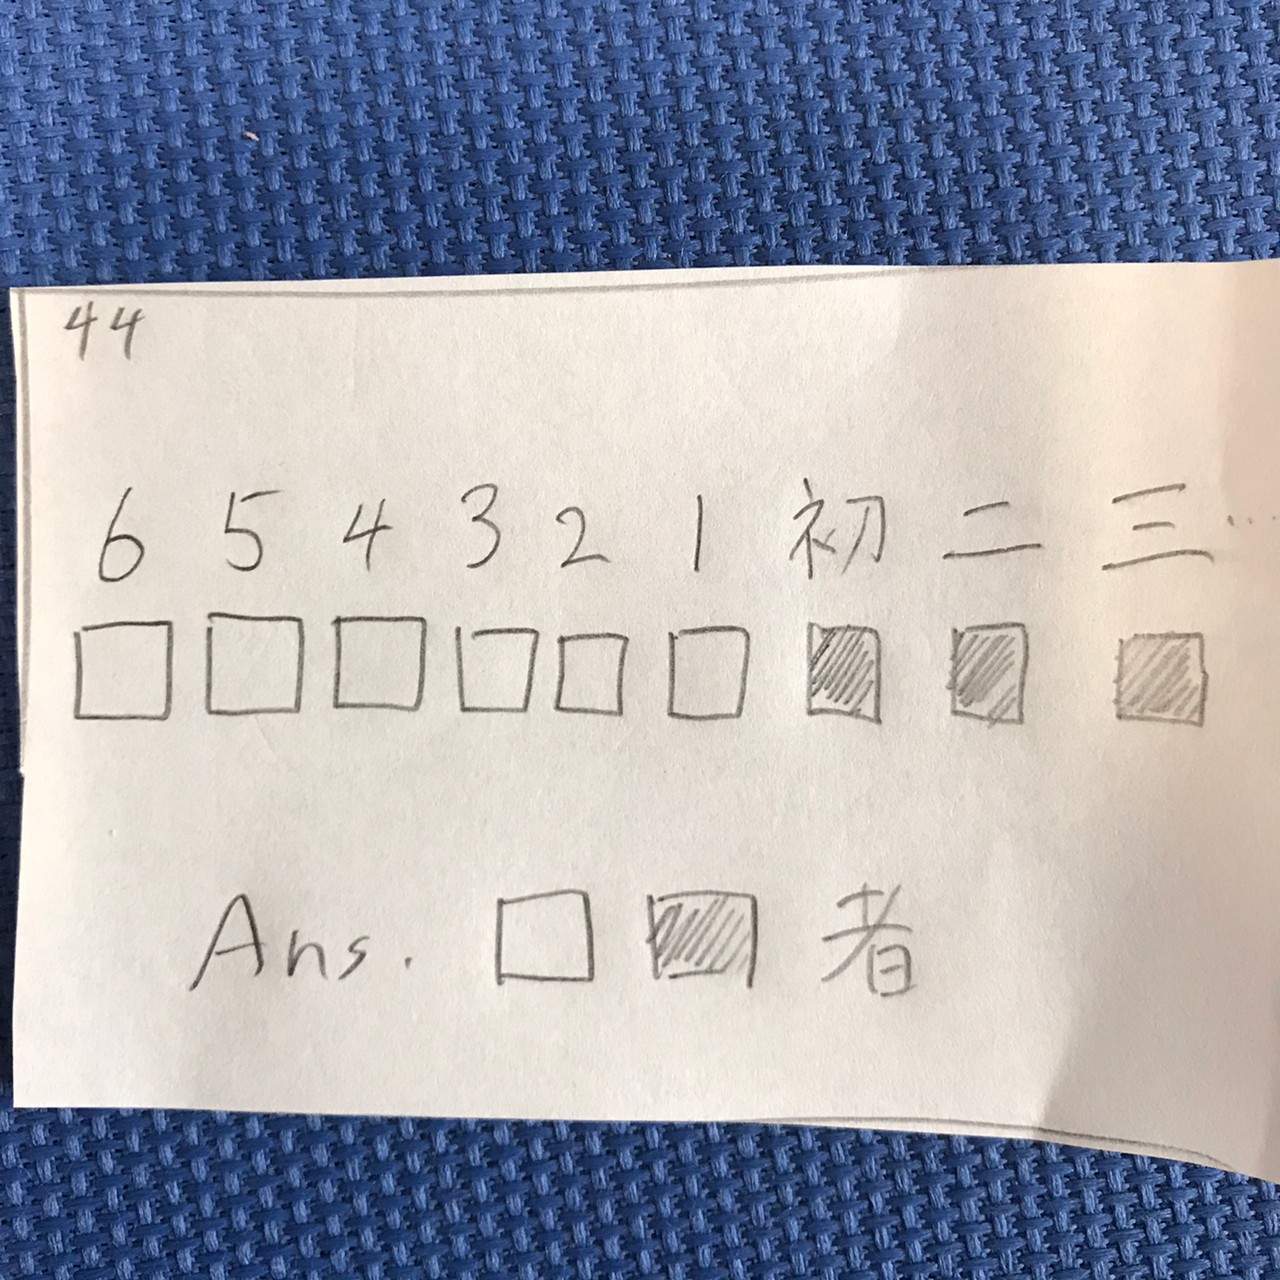 44
6 5 4 3 2 1 初 二 三 …
Ans. 者